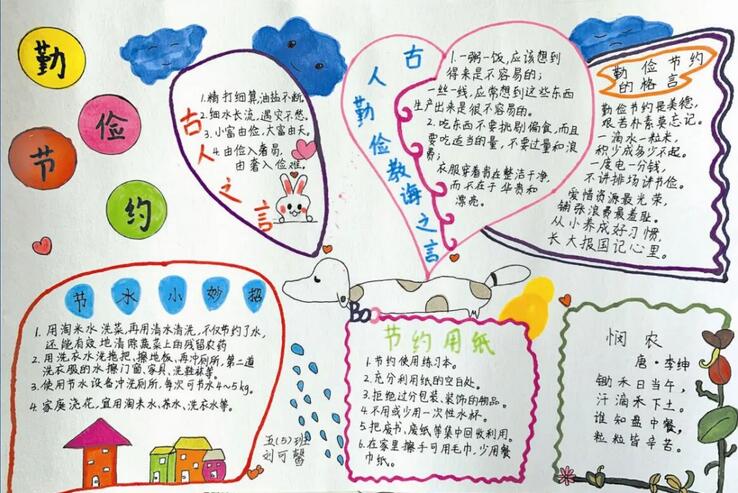 勤
俭
节
约
古人之言
1.精打细算,油盐不断。
2.细水长流,遇灾不愁。
3.小富由俭,大富由天。
4.由俭入奢易,
由奢入俭难。
古人勤俭教诲之言
1.一粥一饭,应该想到
得来是不容易的;
一丝一线,应常想到这些东西
生产出来是很不容易的。
2.吃东西不要挑剔偏食,而且
要吃适当的量,不要过量和浪
费;
衣服穿着贵在整洁干净,
而不在于华贵和
漂亮。
勤俭节约
的格言
勤俭节约是美德,
艰苦朴素莫忘记。
一滴水一粒米,
积少成多少不起。
一度电一分钱,
不讲排场讲节俭。
爱惜资源最光荣,
铺张浪费最羞耻。
从小养成好习惯,
长大报国记心里。
节水小妙招
1.用淘米水洗菜,再用清水清洗,不仅节约了水,
还能有效地清除蔬菜上的残留农药
2.用洗衣水洗拖把、擦地板、再冲厕所,第二道
洗衣服的水擦门窗、家具、洗鞋袜等。
3.使用节水设备冲洗厕所,每次可节水4~5kg。
4.家庭浇花,宜用淘米水、茶水、洗衣水等。
五(5)班
刘可馨
Bo
节约用纸
1.节约使用练习本。
2.充分利用纸的空白处。
3.拒绝过分包装、装饰的物品。
4.不用或少用一次性水杯。
5.把废书、废纸等集中回收利用。
6.在家里擦手可用毛巾,少用餐
巾纸。
悯农
唐·李绅
锄禾日当午,
汗滴禾下土。
谁知盘中餐,
粒粒皆辛苦。